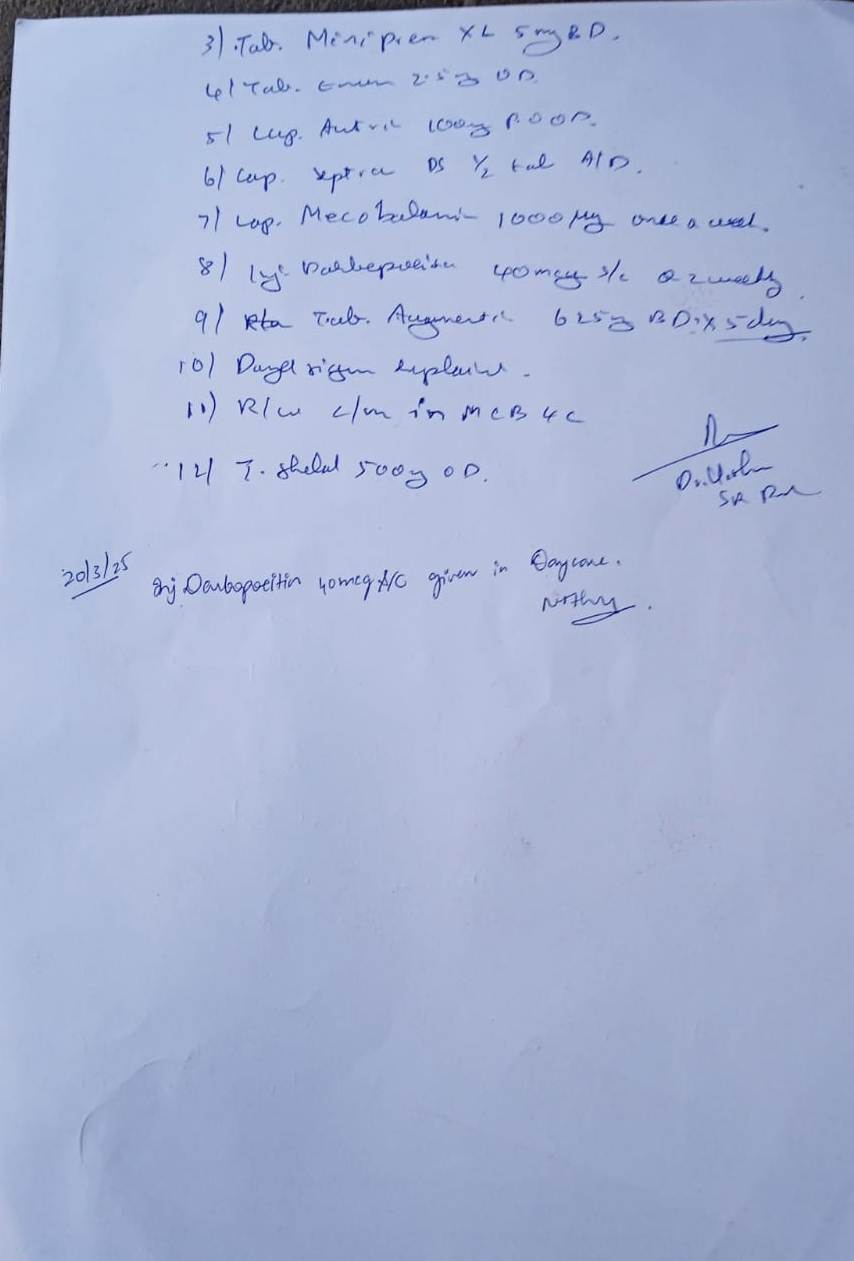 3) Tab. Minipren XL 5mg BD.
4) Tab. 2.5mg OD
5) Cap. 100mg OD.
6) Cap. Septra DS 1/2 tab A/D.
7) Cap. Mecobalamin 1000 µg once a week.
8) Inj. Darbepoeitin 40mcg s/c 2 weekly
9) Tab. Augmentin 625mg BD x 5 day
10) explained.
11) R/w in MCB 4C
12) T. Shelcal 500mg OD.
SR
20/3/25 Inj Darbopoeitin 40mcg S/C given in Daycare.